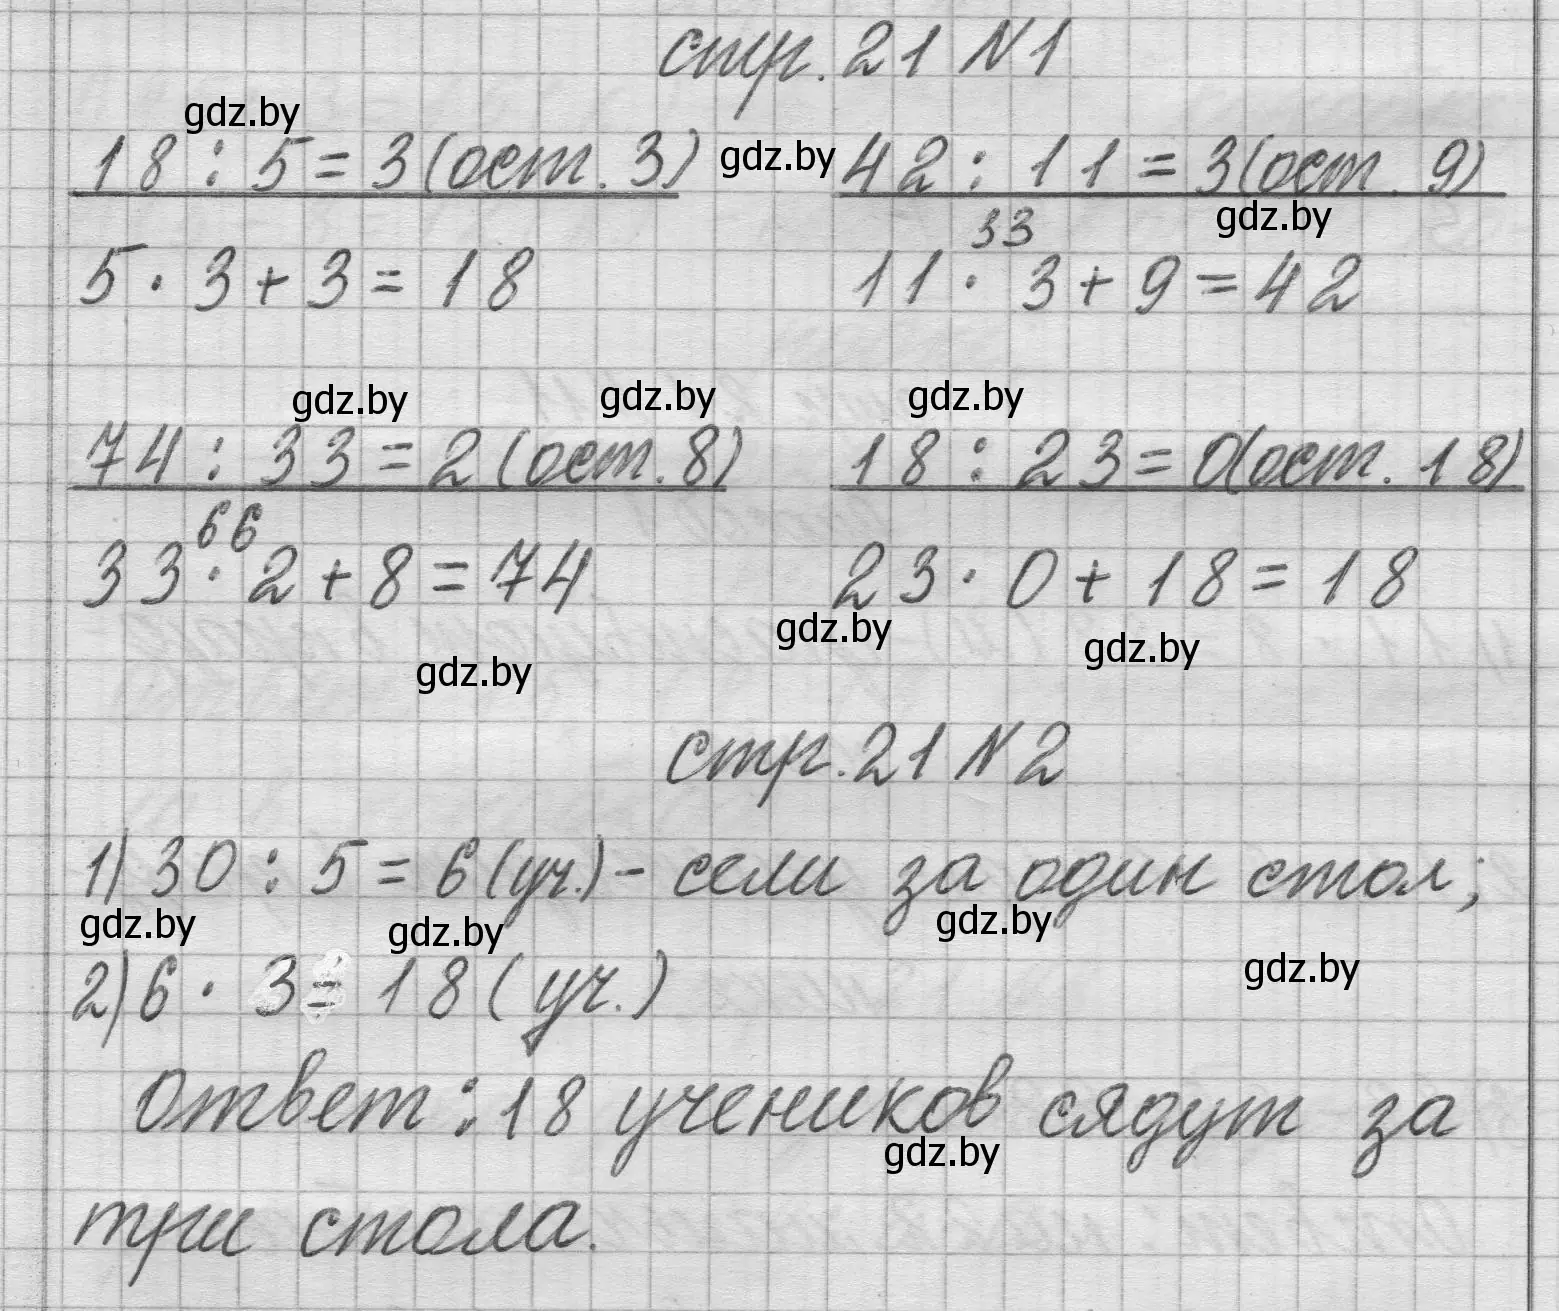 стр. 21 N1
gdz.by
18 : 5 = 3 (ост. 3) gdz.by 42 : 11 = 3 (ост. 9)
gdz.by
33
5 · 3 + 3 = 18 11 · 3 + 9 = 42
gdz.by gdz.by gdz.by
74 : 33 = 2 (ост. 8) 18 : 23 = 0 (ост. 18)
66
33 · 2 + 8 = 74 23 · 0 + 18 = 18
gdz.by gdz.by gdz.by
стр. 21 N2
1) 30 : 5 = 6 (уч.) - сели за один стол;
gdz.by gdz.by gdz.by
gdz.by
2) 6 · 3 = 18 (уч.)
Ответ: 18 учеников сядут за
gdz.by
три стола.